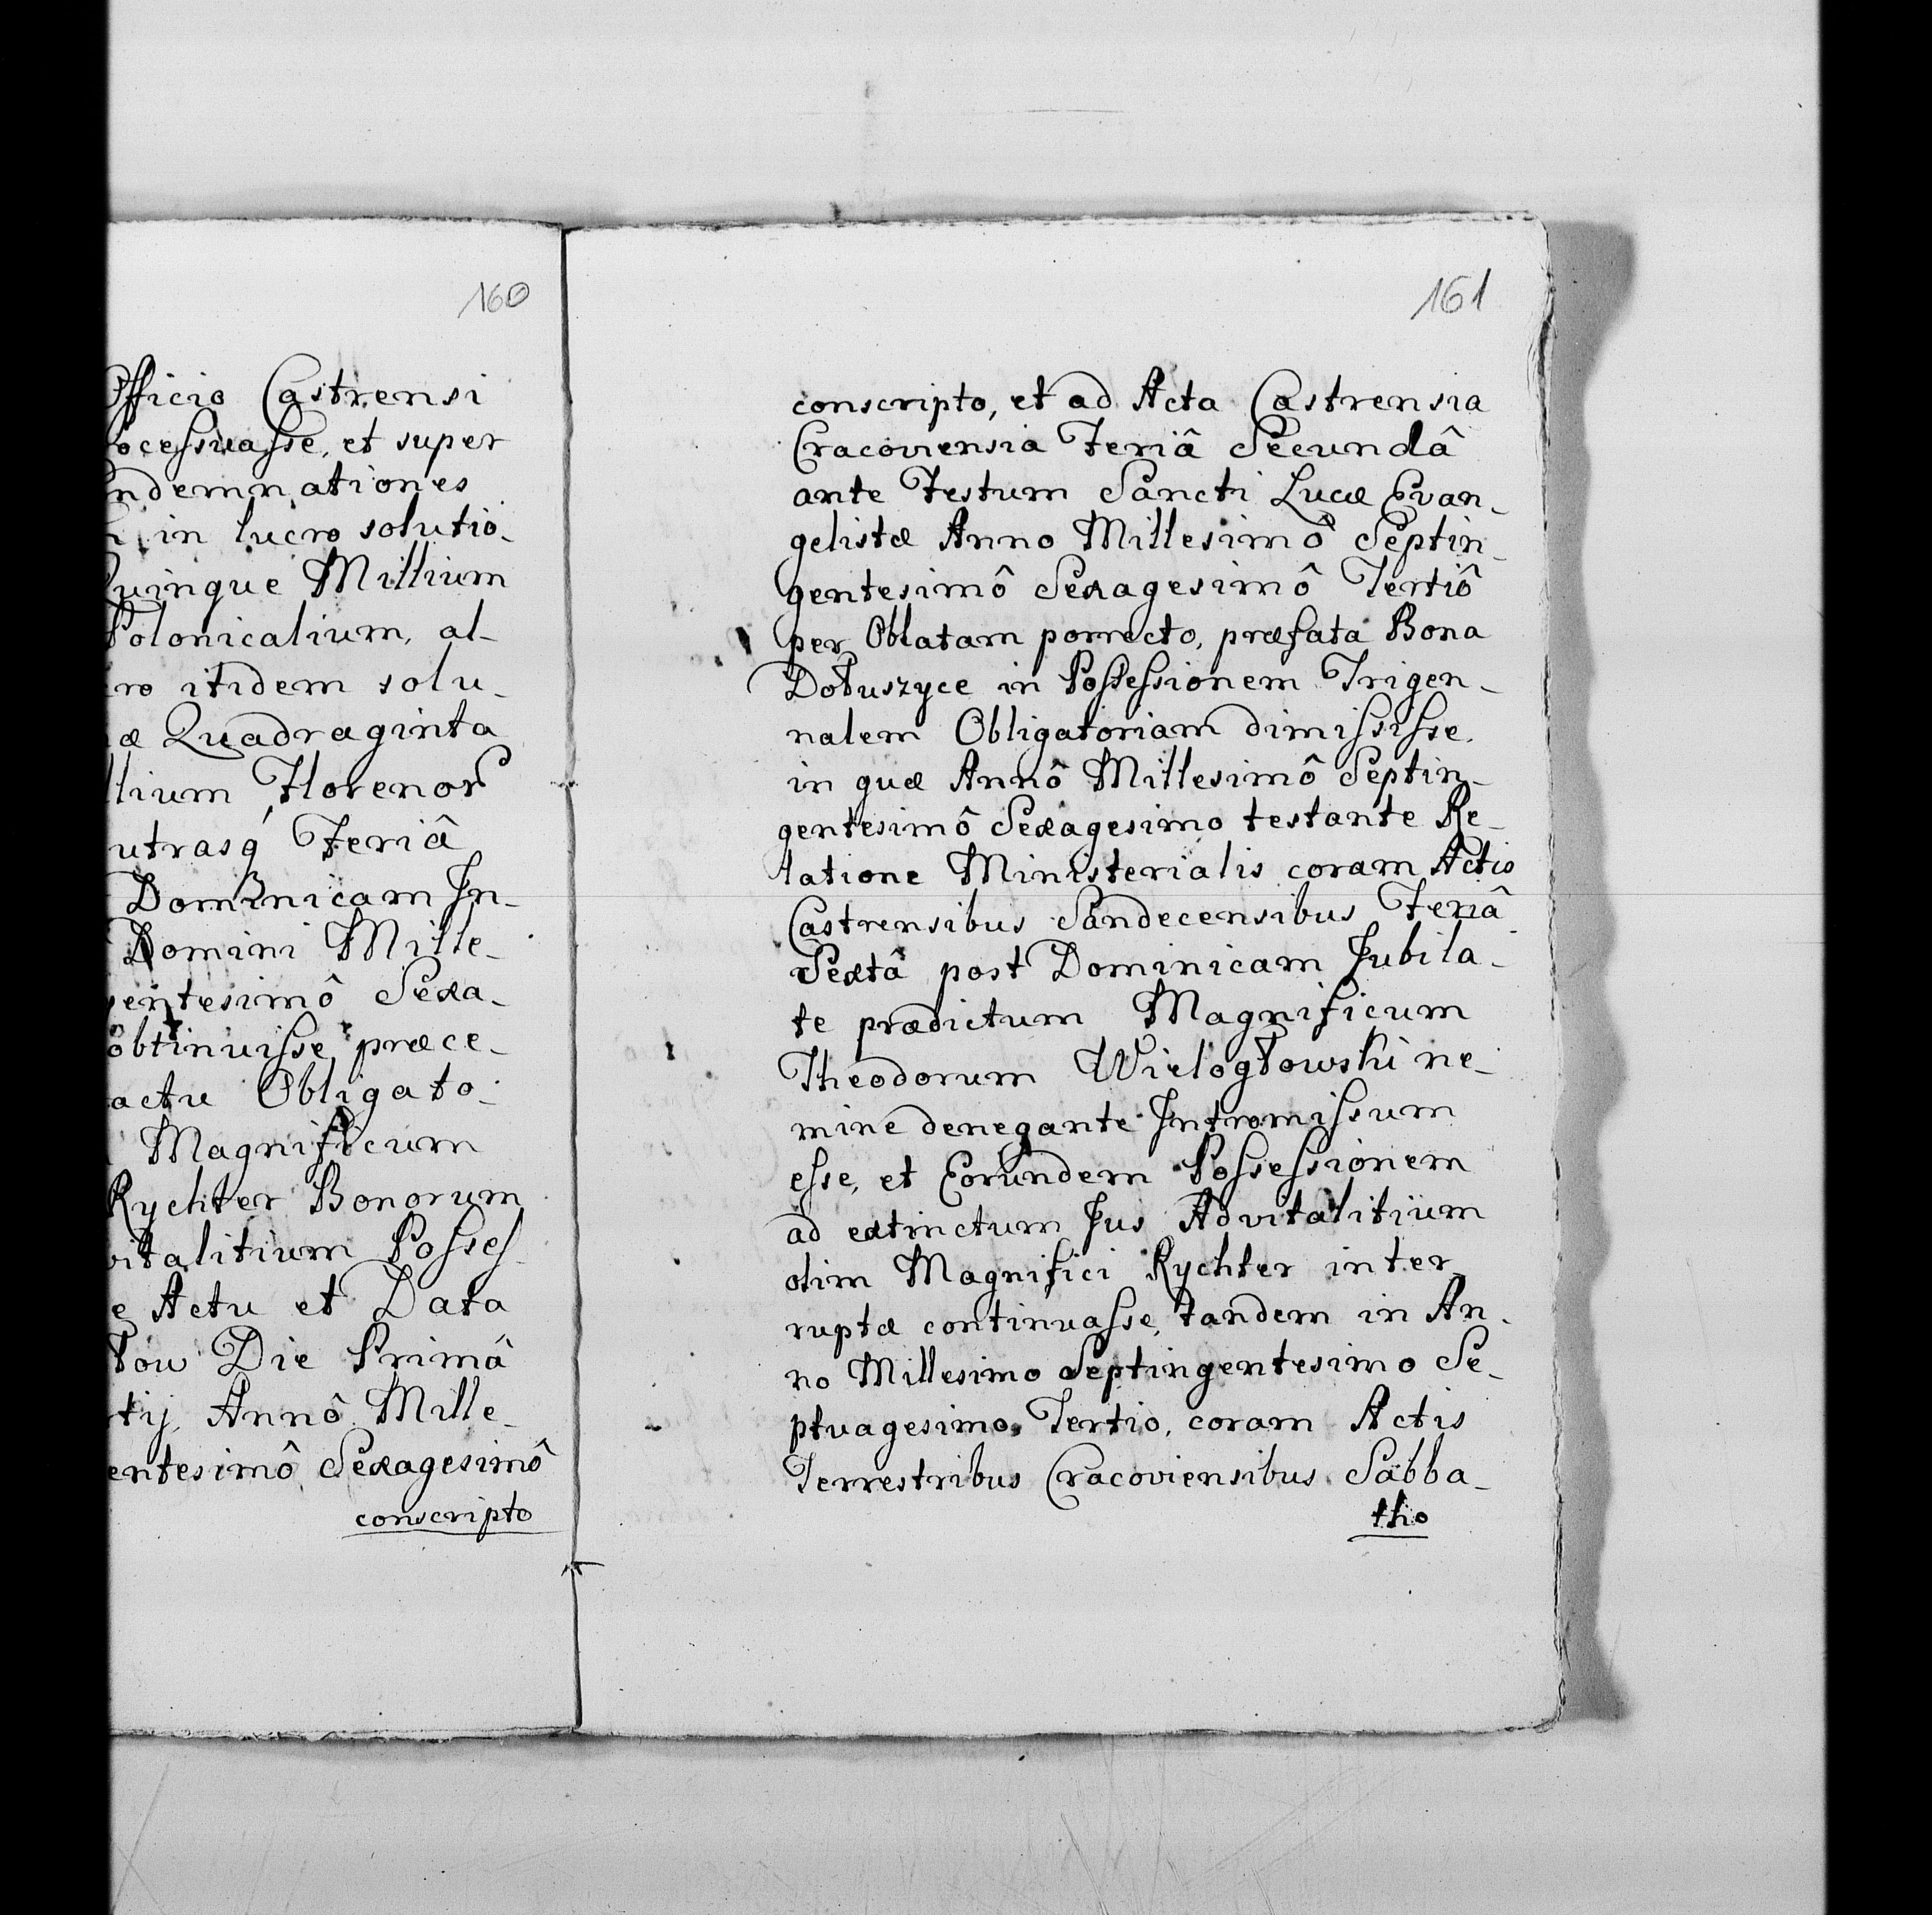 160
Officio Castrensi
ocessuasse, et super
ndemnationes
in lucro solutio-
Quinque Millium
Polonicalium, al-
ro itidem solu-
æ Quadraginta
llium Florenor
utrasq́ Feriâ
Dominicam In-
Domini Mille-
gentesimô Sexa-
obtinuisse, præce-
actu Obligato-
Magnificum
Rychter Bonorum
vitalitium Posses-
e Actu et Data
łow Die Primâ
tij, Annô Mille-
entesimô Sexagesimô
conscripto
161
conscripto, et ad Acta Castrensia
Cracoviensia Feriâ Secundâ
ante Festum Sancti Lucæ Evan-
gelistæ Anno Millesimô Septin-
gentesimô Sexagesimô Tertiô
per Oblatam porrecto, præfata Bona
Dołuszyce in Possessionem Trigen-
nalem Obligatoriam dimisisse,
in quæ Annô Millesimô Septin-
gentesimô Sexagesimo testante Re-
latione Ministerialis coram Actis
Castrensibus Sandecensibus Feriâ
Sextâ post Dominicam Jubila-
te prædictum Magnificum
Theodorum Wielogłowski ne-
mine denegante Intromissum
esse, et Eorundem Possessionem
ad extinctum Jus Advitalitium
olim Magnifici Rychter inter-
ruptæ continuasse, tandem in An-
no Millesimo Septingentesimo Se-
ptuagesimo Tertio, coram Actis
Terrestribus Cracoviensibus Sabba-
tho